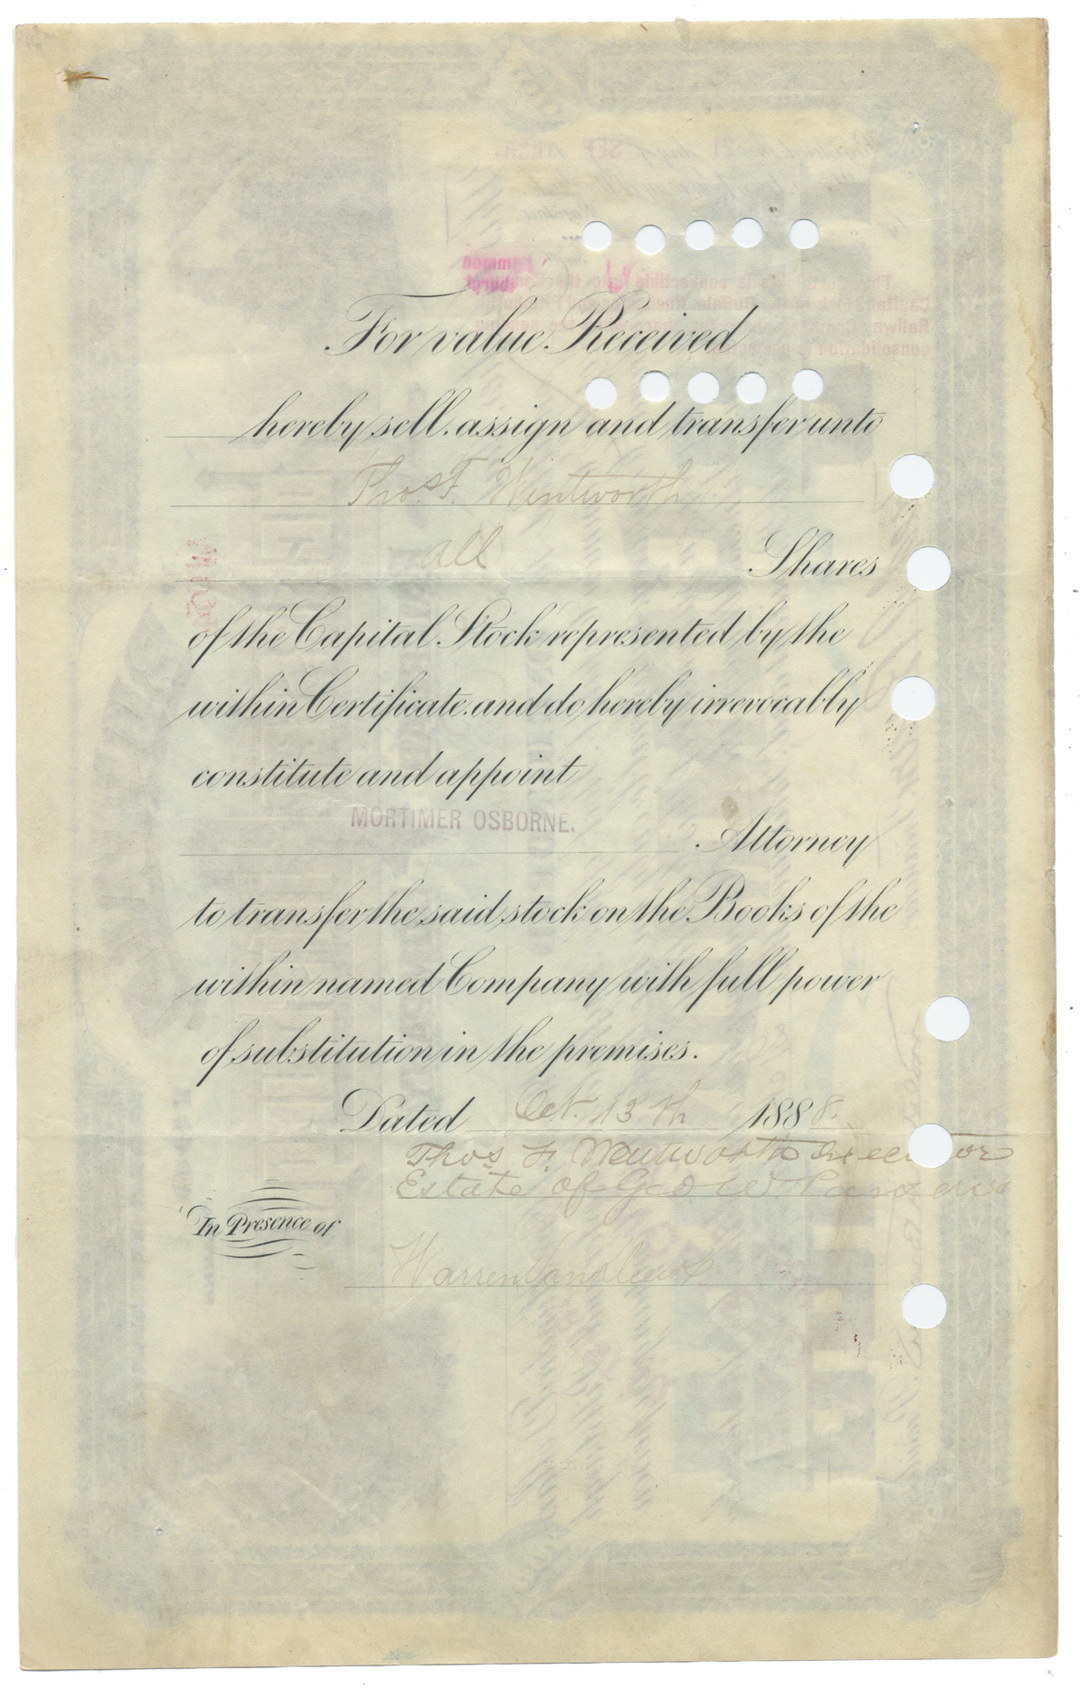 For value Received
hereby sell, assign and transfer unto
Thos F. Wentworth
all Shares
of the Capital Stock represented by the
within Certificate and do hereby irrevocably
constitute and appoint
MORTIMER OSBORNE.
Attorney
to transfer the said stock on the Books of the
within named Company with full power
of substitution in the premises.
Dated Oct. 13th 1888.
Thos F. Wentworth Executor
Estate of Geo W
In Presence of
Warren